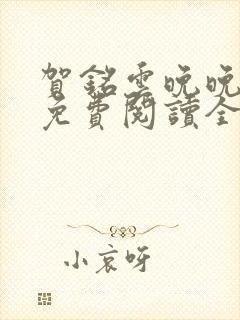 賀銘雲晚晚
免費閱讀全
小哀呀